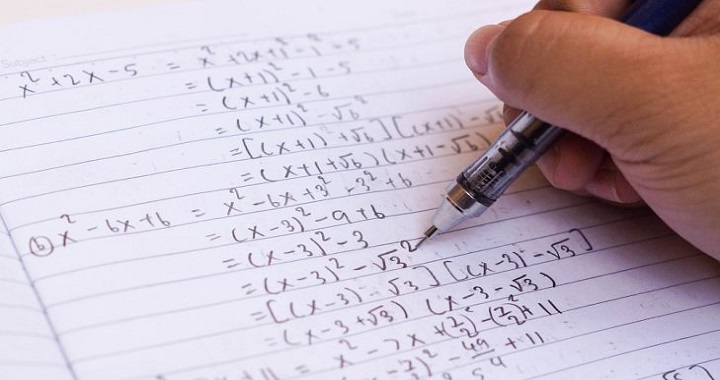 Subject
x² + 2x - 5 = x² + 2x + 1² - 1² - 5
= (x+1)² - 1 - 5
= (x+1)² - 6
= (x+1)² - √6²
= [(x+1) + √6] [(x+1) - √
= (x+1+√6) (x+1-√6)
(b) x² - 6x + 6 = x² - 6x + 3² - 3² + 6
= (x-3)² - 9 + 6
= (x-3)² - 3
= (x-3)² - √3²
= [(x-3) - √3] [(x-3) - √3]
= (x-3+√3) (x-3-√3)
+ 11 = x² - 7x + (7/2)² - (7/2)² + 11
)² - 49/4 + 11